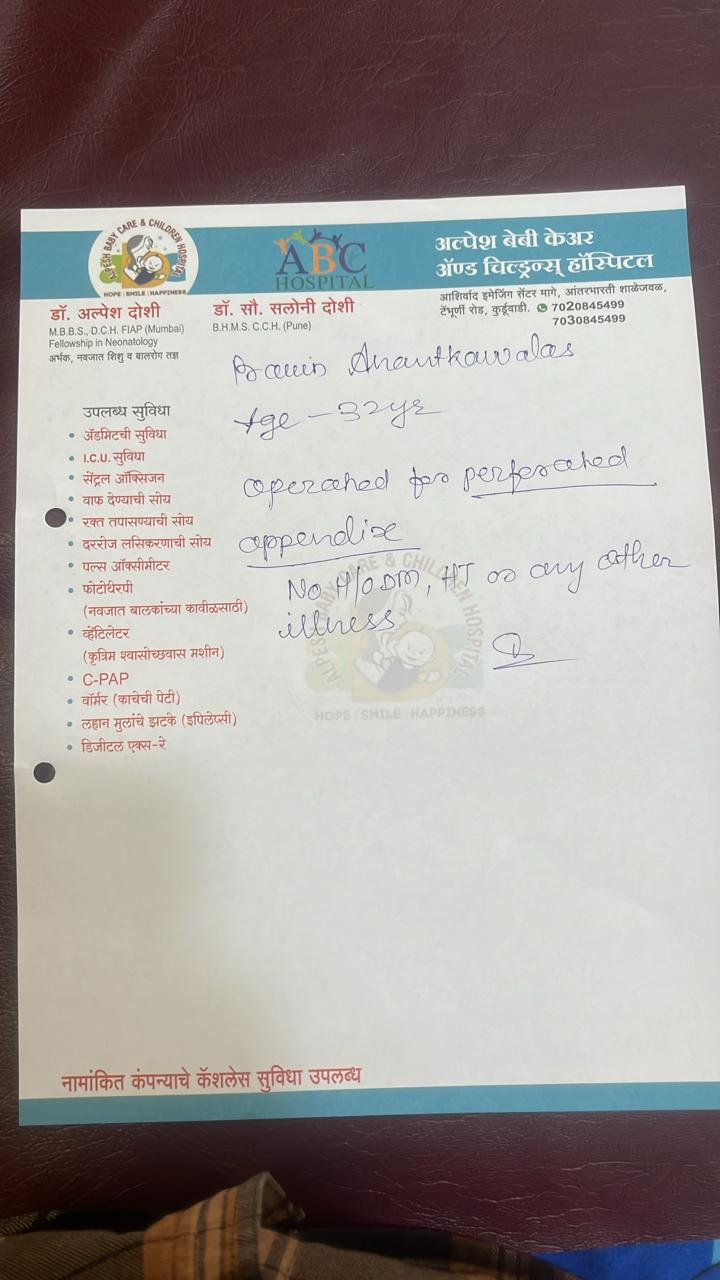 ALPESH BABY CARE & CHILDREN HOSPITAL
HOPE | SMILE | HAPPINESS
ABC
HOSPITAL
अल्पेश बेबी केअर
ॲण्ड चिल्ड्रन्स् हॉस्पिटल
आशिर्वाद इमेजिंग सेंटर मागे, आंतरभारती शाळेजवळ,
टेंभूर्णी रोड, कुर्डूवाडी. 7020845499
7030845499
डॉ. अल्पेश दोशी
M.B.B.S., D.C.H. FIAP (Mumbai)
Fellowship in Neonatology
अर्भक, नवजात शिशु व बालरोग तज्ञ
डॉ. सौ. सलोनी दोशी
B.H.M.S. C.C.H. (Pune)
Age - 32yr
operated for perforated
appendix
No H/O DM, HT or any other
illness
उपलब्ध सुविधा
ॲडमिटची सुविधा
I.C.U. सुविधा
सेंट्रल ऑक्सिजन
वाफ देण्याची सोय
रक्त तपासण्याची सोय
दररोज लसिकरणाची सोय
पल्स ऑक्सीमीटर
फोटोथेरपी
(नवजात बालकांच्या कावीळसाठी)
व्हेंटिलेटर
(कृत्रिम श्वासोच्छवास मशीन)
C-PAP
वॉर्मर (काचेची पेटी)
लहान मुलांचे झटके (इपिलेप्सी)
डिजीटल एक्स-रे
ALPESH BABY CARE & CHILDREN HOSPITAL
HOPE | SMILE | HAPPINESS
नामांकित कंपन्याचे कॅशलेस सुविधा उपलब्ध